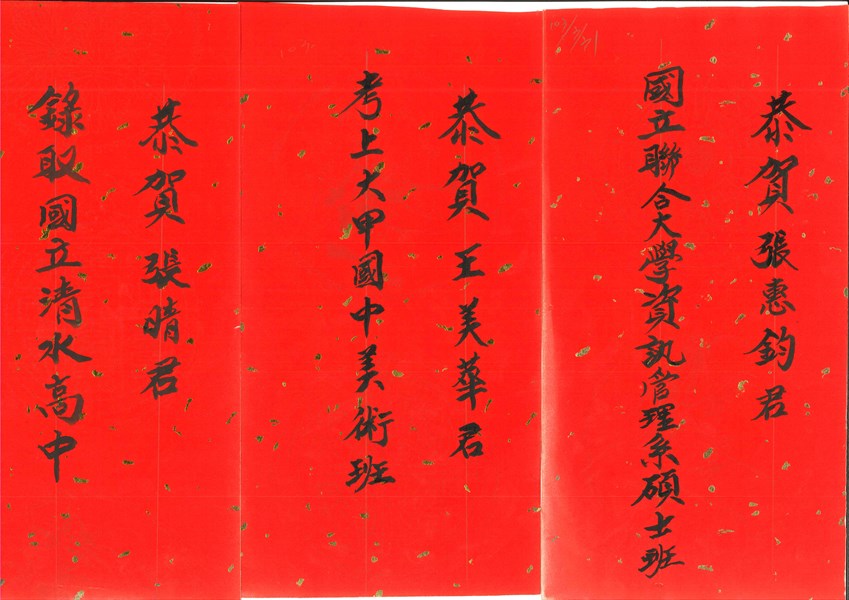 恭賀張惠鈞君
國立聯合大學資訊管理系碩士班
恭賀王美華君
考上大甲國中美術班
恭賀張晴君
錄取國立清水高中